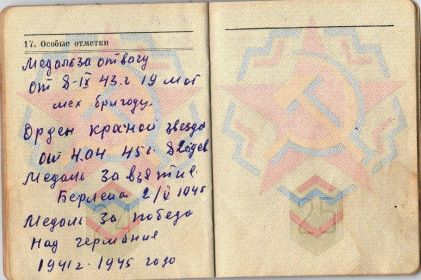 17. Особые отметки
Медаль за отвагу
от 43 г. 19 мот
мех бригаду.
Орден краной звезда
от 4.04 45 г.
Медаль За взятие
Берлена 2/V 1945
Медаль За победа
Над германие
1941 г. 1945 годо
25